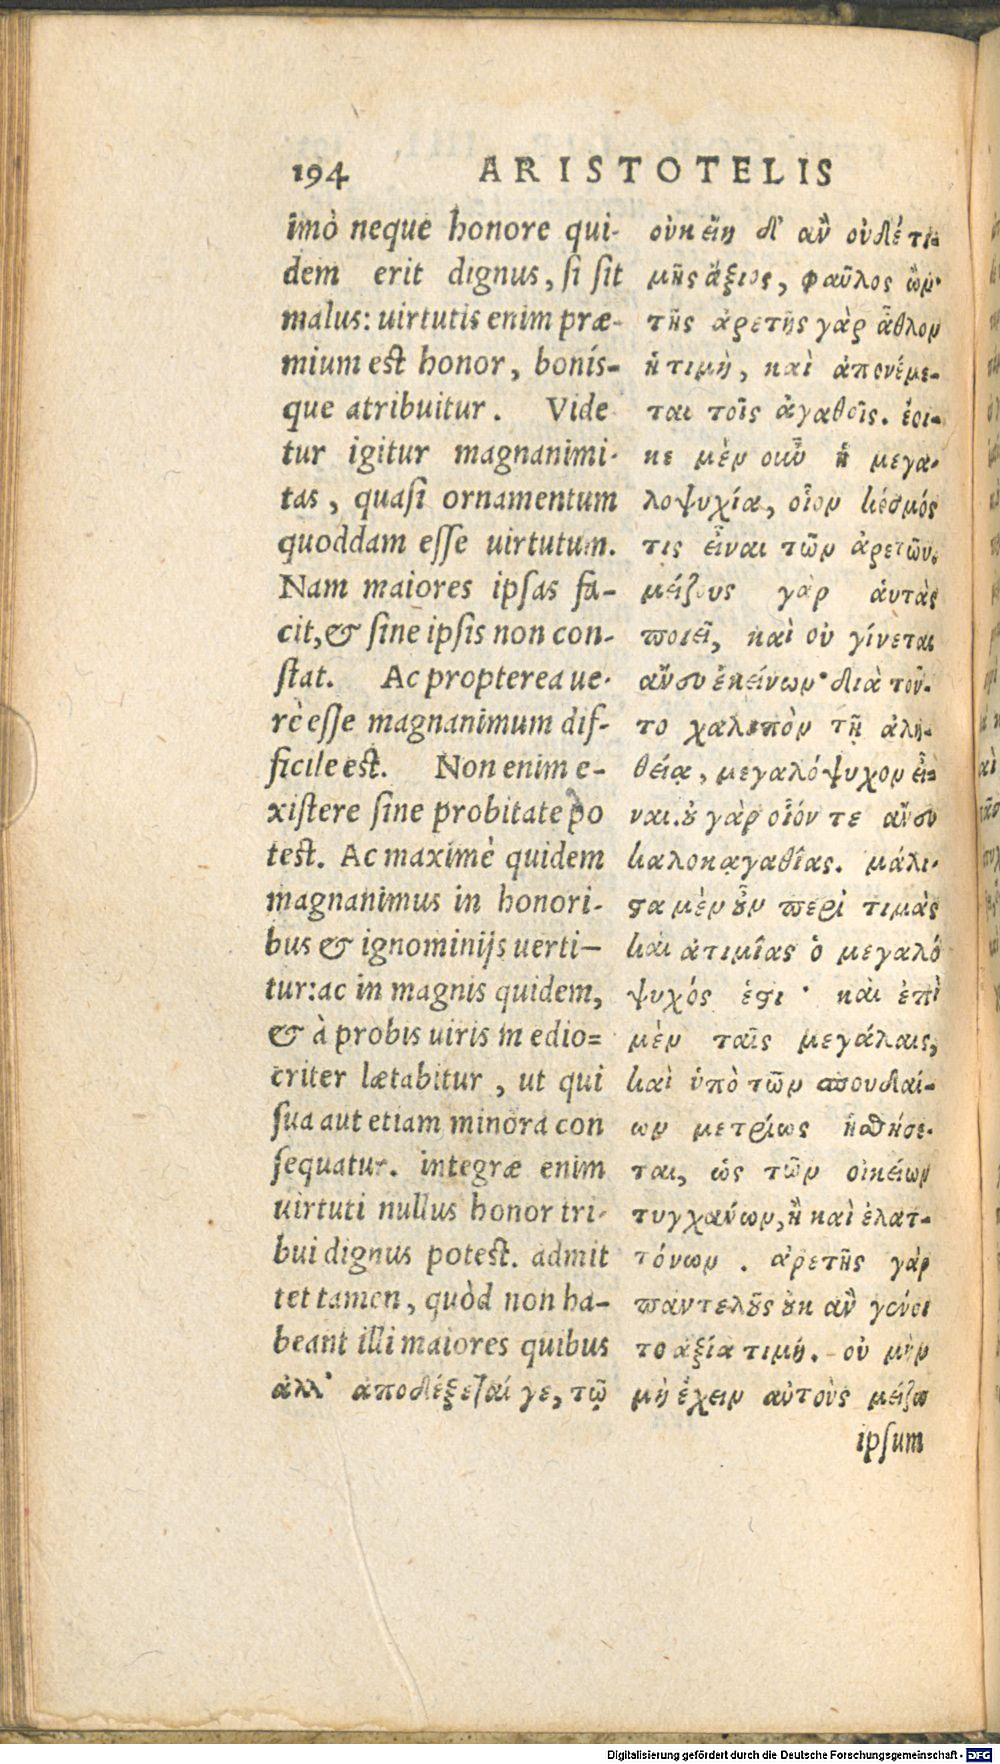 194 ARISTOTELIS
imò neque honore qui-
dem erit dignus, si sit
malus: uirtutis enim præ-
mium est honor, bonís-
que atribuitur. Vide
tur igitur magnanimi-
tas, quasi ornamentum
quoddam esse uirtutum.
Nam maiores ipsas fa-
cit, & sine ipsis non con-
stat. Ac propterea ue-
rè esse magnanimum dif-
ficile est. Non enim e-
xistere sine probitate po
test. Ac maximè quidem
magnanimus in honori-
bus & ignominijs uerti-
tur: ac in magnis quidem,
& à probis uiris medio=
criter lætabitur, ut qui
sua aut etiam minora con
sequatur. integræ enim
uirtuti nullus honor tri-
bui dignus potest. admit
tet tamen, quòd non ha-
beant illi maiores quibus
ἀλλ' ἀποδέξεταί γε, τῷ
οὐκ εἴη δ' ἂν οὐδὲ τι-
μῆς ἄξιος, φαῦλος ὤν·
τῆς ἀρετῆς γὰρ ἆθλον
ἡ τιμὴ, καὶ ἀπονέμε-
ται τοῖς ἀγαθοῖς. ἔοι-
κε μὲν οὖν ἡ μεγα-
λοψυχία, οἷον κόσμός
τις εἶναι τῶν ἀρετῶν.
μείζους γὰρ αὐτὰς
ποιεῖ, καὶ οὐ γίνεται
ἄνευ ἐκείνων· διὰ τοῦ-
το χαλεπὸν τῇ ἀλη-
θείᾳ, μεγαλόψυχον εἶ-
ναι. οὐ γὰρ οἷόν τε ἄνευ
καλοκαγαθίας. μάλι-
στα μὲν οὖν περὶ τιμὰς
καὶ ἀτιμίας ὁ μεγαλό
ψυχός ἐστι· καὶ ἐπὶ
μὲν ταῖς μεγάλαις,
καὶ ὑπὸ τῶν σπουδαί-
ων μετρίως ἡσθήσε-
ται, ὡς τῶν οἰκείων
τυγχάνων, ἢ καὶ ἐλατ-
τόνων. ἀρετῆς γὰρ
παντελοῦς οὐκ ἂν γένοι
το ἀξία τιμή. οὐ μὴν
μὴ ἔχειν αὐτοὺς μείζω
ipsum
Digitalisierung gefördert durch die Deutsche Forschungsgemeinschaft - DFG